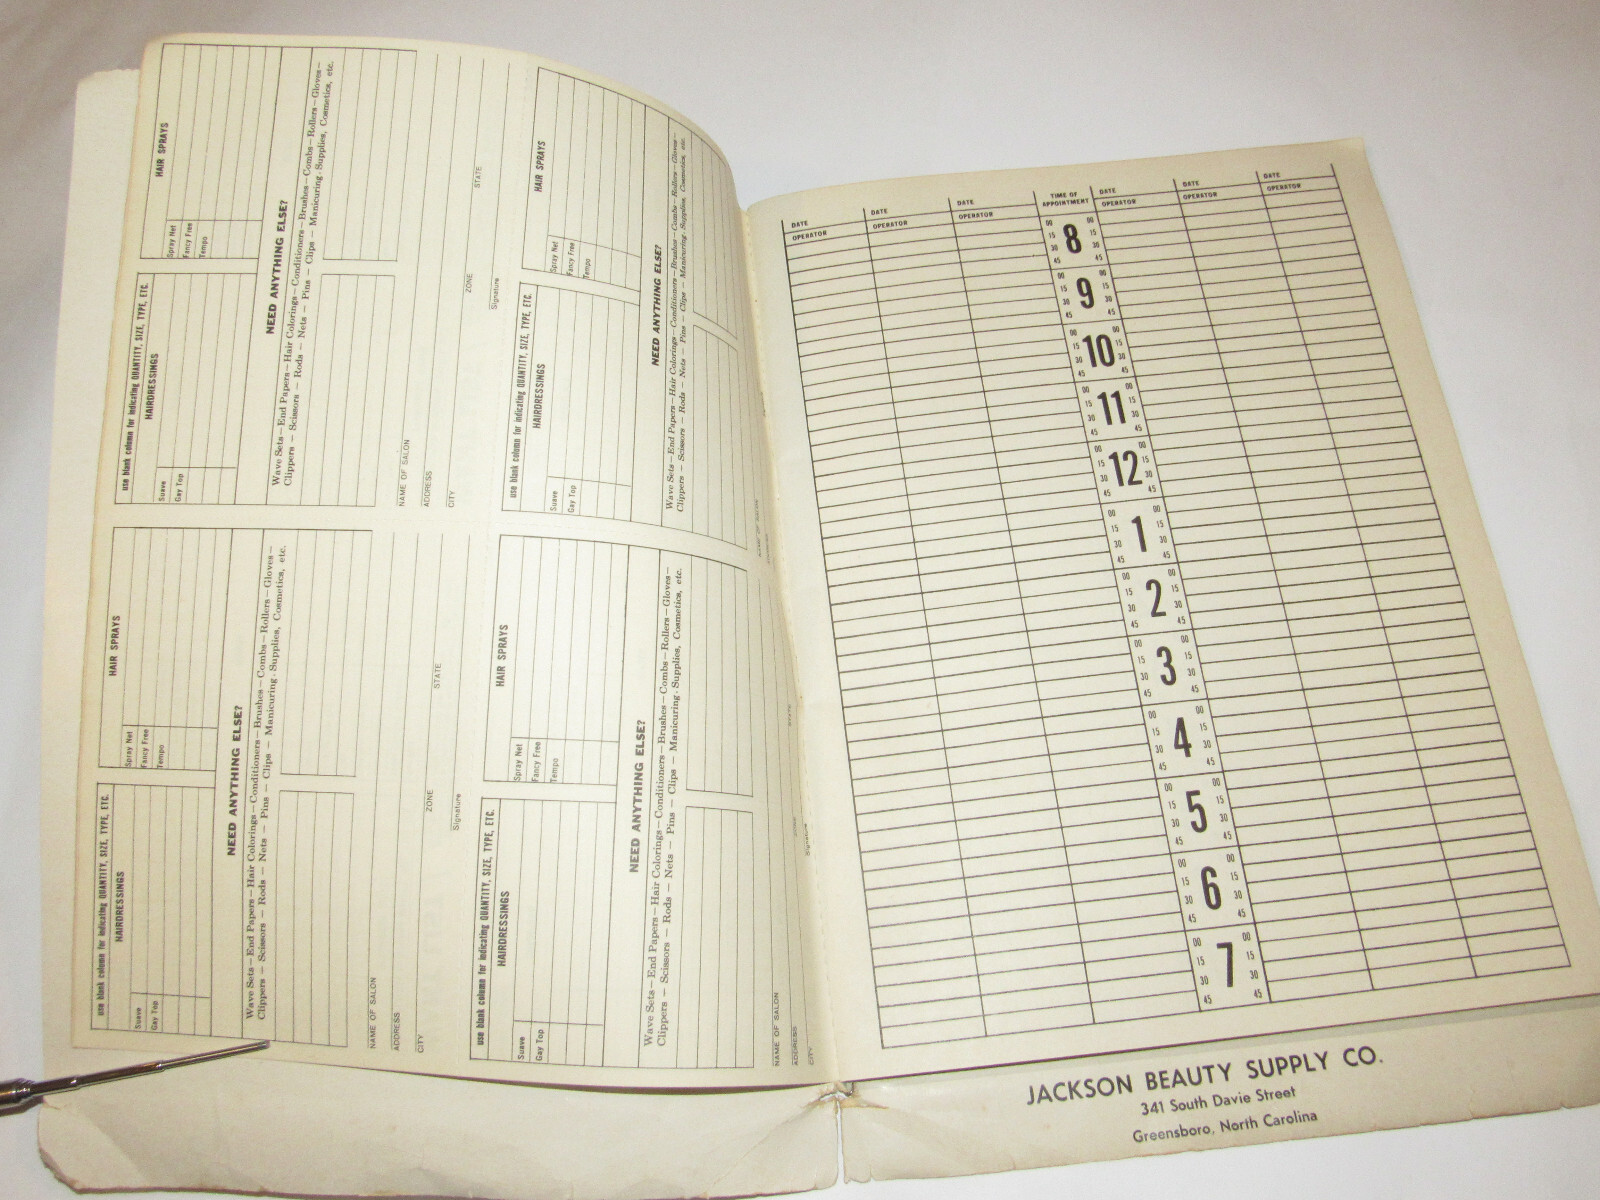 use blank column for indicating QUANTITY, SIZE, TYPE, ETC.
HAIRDRESSINGS
Suave
Gay Top
HAIR SPRAYS
Spray Net
Fancy Free
Tempo
NEED ANYTHING ELSE?
Wave Sets—End Papers—Hair Colorings—Conditioners—Brushes—Combs—Rollers—Gloves—
Clippers — Scissors — Rods — Nets — Pins — Clips — Manicuring Supplies, Cosmetics, etc.
NAME OF SALON
ADDRESS
CITY
ZONE
STATE
Signature
use blank column for indicating QUANTITY, SIZE, TYPE, ETC.
HAIRDRESSINGS
Suave
Gay Top
HAIR SPRAYS
Spray Net
Fancy Free
Tempo
NEED ANYTHING ELSE?
Wave Sets—End Papers—Hair Colorings—Conditioners—Brushes—Combs—Rollers—Gloves—
Clippers — Scissors — Rods — Nets — Pins — Clips — Manicuring Supplies, Cosmetics, etc.
NAME OF SALON
ADDRESS
CITY
ZONE
STATE
Signature
use blank column for indicating QUANTITY, SIZE, TYPE, ETC.
HAIRDRESSINGS
Suave
Gay Top
HAIR SPRAYS
Spray Net
Fancy Free
Tempo
NEED ANYTHING ELSE?
Wave Sets—End Papers—Hair Colorings—Conditioners—Brushes—Combs—Rollers—Gloves—
Clippers — Scissors — Rods — Nets — Pins — Clips — Manicuring Supplies, Cosmetics, etc.
NAME OF SALON
ADDRESS
CITY
STATE
Signature
use blank column for indicating QUANTITY, SIZE, TYPE, ETC.
HAIRDRESSINGS
Suave
Gay Top
HAIR SPRAYS
Spray Net
Fancy Free
Tempo
NEED ANYTHING ELSE?
Wave Sets—End Papers—Hair Colorings—Conditioners—Brushes—Combs—Rollers—Gloves—
Clippers — Scissors — Rods — Nets — Pins — Clips — Manicuring Supplies, Cosmetics, etc.
NAME OF SALON
DATE DATE DATE TIME OF APPOINTMENT DATE DATE DATE
OPERATOR OPERATOR OPERATOR OPERATOR OPERATOR OPERATOR
00 00
15 8 15
30 30
45 45
00 00
15 9 15
30 30
45 45
00 00
15 10 15
30 30
45 45
00 00
15 11 15
30 30
45 45
00 00
15 12 15
30 30
45 45
00 00
15 1 15
30 30
45 45
00 00
15 2 15
30 30
45 45
00 00
15 3 15
30 30
45 45
00 00
15 4 15
30 30
45 45
00 00
15 5 15
30 30
45 45
00 00
15 6 15
30 30
45 45
00 00
15 7 15
30 30
45 45
JACKSON BEAUTY SUPPLY CO.
341 South Davie Street
Greensboro, North Carolina